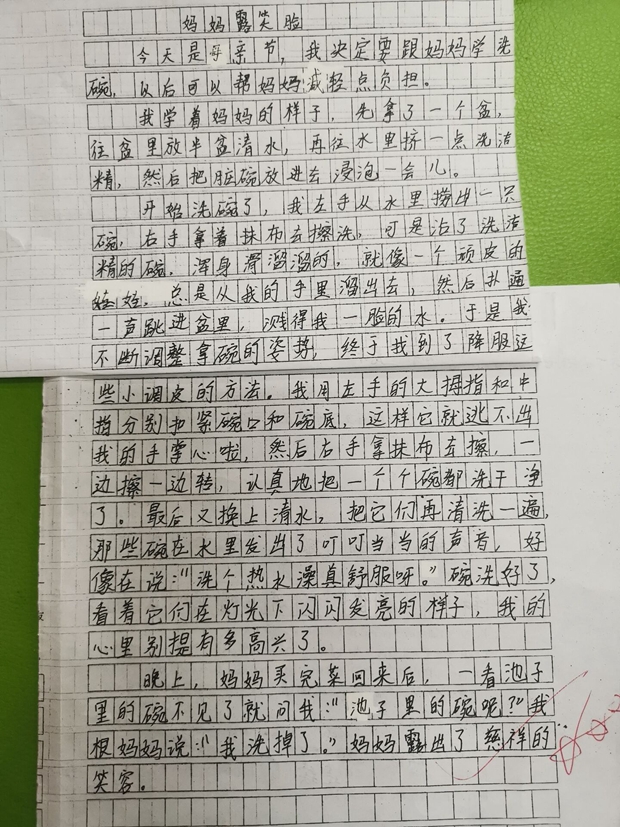 妈妈露笑脸
今天是母亲节，我决定要跟妈妈学洗
碗，以后可以帮妈妈减轻点负担。
我学着妈妈的样子，先拿了一个盆，
往盆里放半盆清水，再往水里挤一点洗洁
精，然后把脏碗放进去浸泡一会儿。
开始洗碗了，我左手从水里捞出一只
碗，右手拿着抹布去擦洗，可是沾了洗洁
精的碗，浑身滑溜溜的，就像一个顽皮的
娃娃，总是从我的手里溜出去，然后扑通
一声跳进盆里，溅得我一脸的水。于是我
不断调整拿碗的姿势，终于找到了降服这
些小调皮的方法。我用左手的大拇指和中
指分别扣紧碗口和碗底，这样它就逃不出
我的手掌心啦，然后右手拿抹布去擦，一
边擦一边转，认真地把一个个碗都洗干净
了。最后又换上清水，把它们再清洗一遍，
那些碗在水里发出了叮叮当当的声音，好
像在说：“洗个热水澡真舒服呀。”碗洗好了，
看着它们在灯光下闪闪发亮的样子，我的
心里别提有多高兴了。
晚上，妈妈买完菜回来后，一看池子
里的碗不见了就问我：“池子里的碗呢？”我
根妈妈说：“我洗掉了。”妈妈露出了慈祥的
笑容。